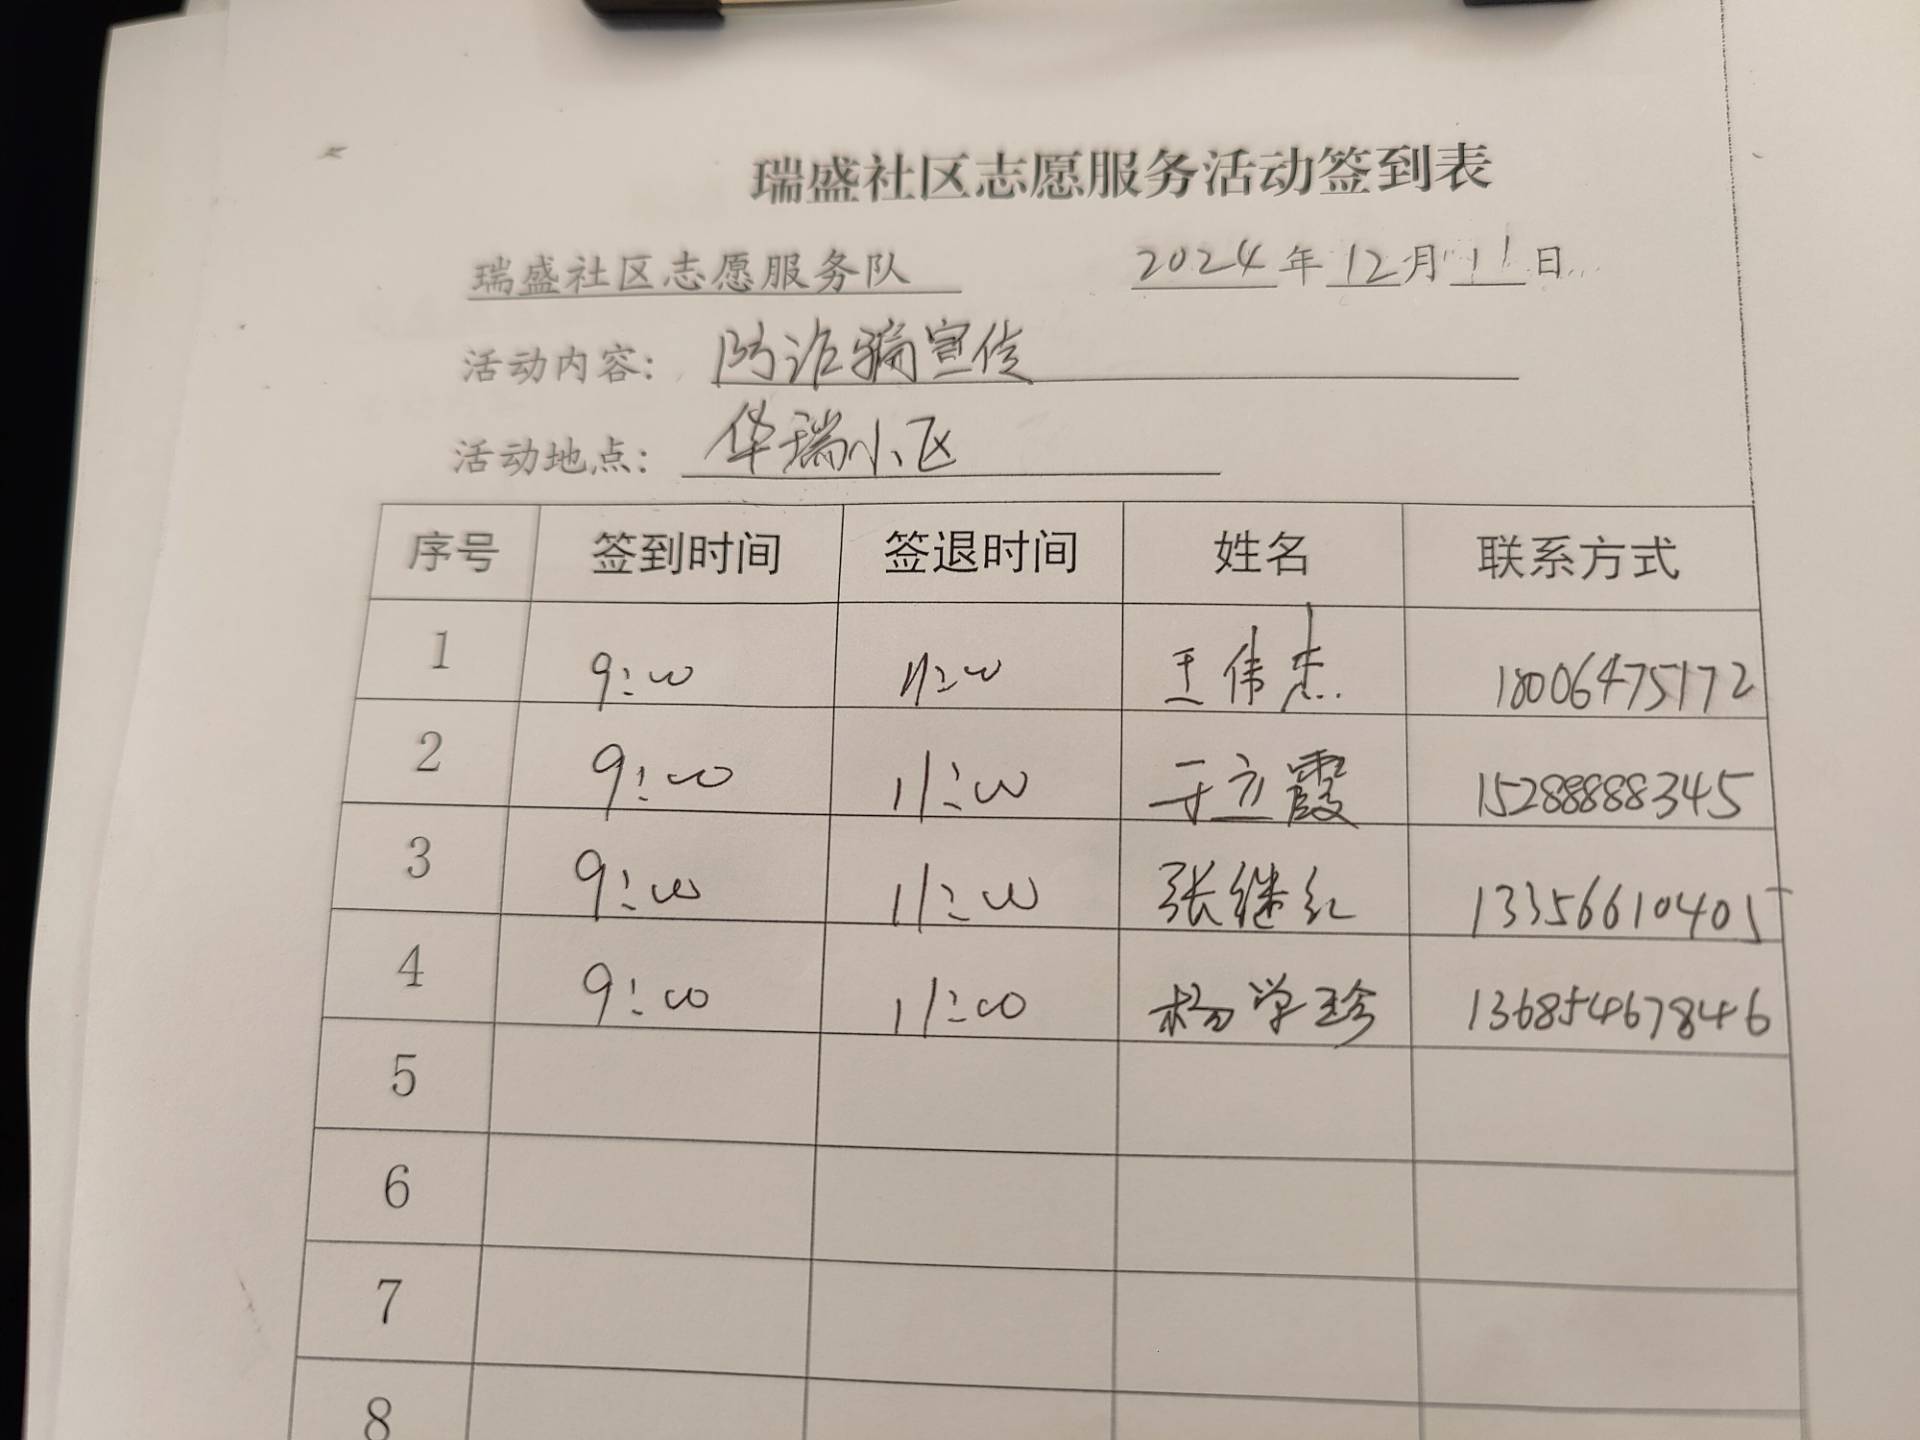 瑞盛社区志愿服务活动签到表
瑞盛社区志愿服务队 2024年12月11日
活动内容: 防诈骗宣传
活动地点: 华瑞小区
序号 签到时间 签退时间 姓名 联系方式
1 9:00 11:00 王伟杰 18006475172
2 9:00 11:00 于立霞 15288888345
3 9:00 11:00 张继红 13356610405
4 9:00 11:00 杨学珍 13685467846
5
6
7
8